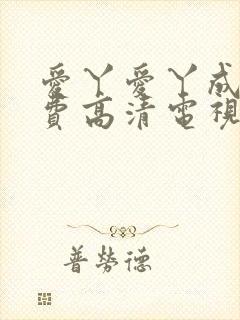 愛丫愛丫成
費高清電視
普勞德